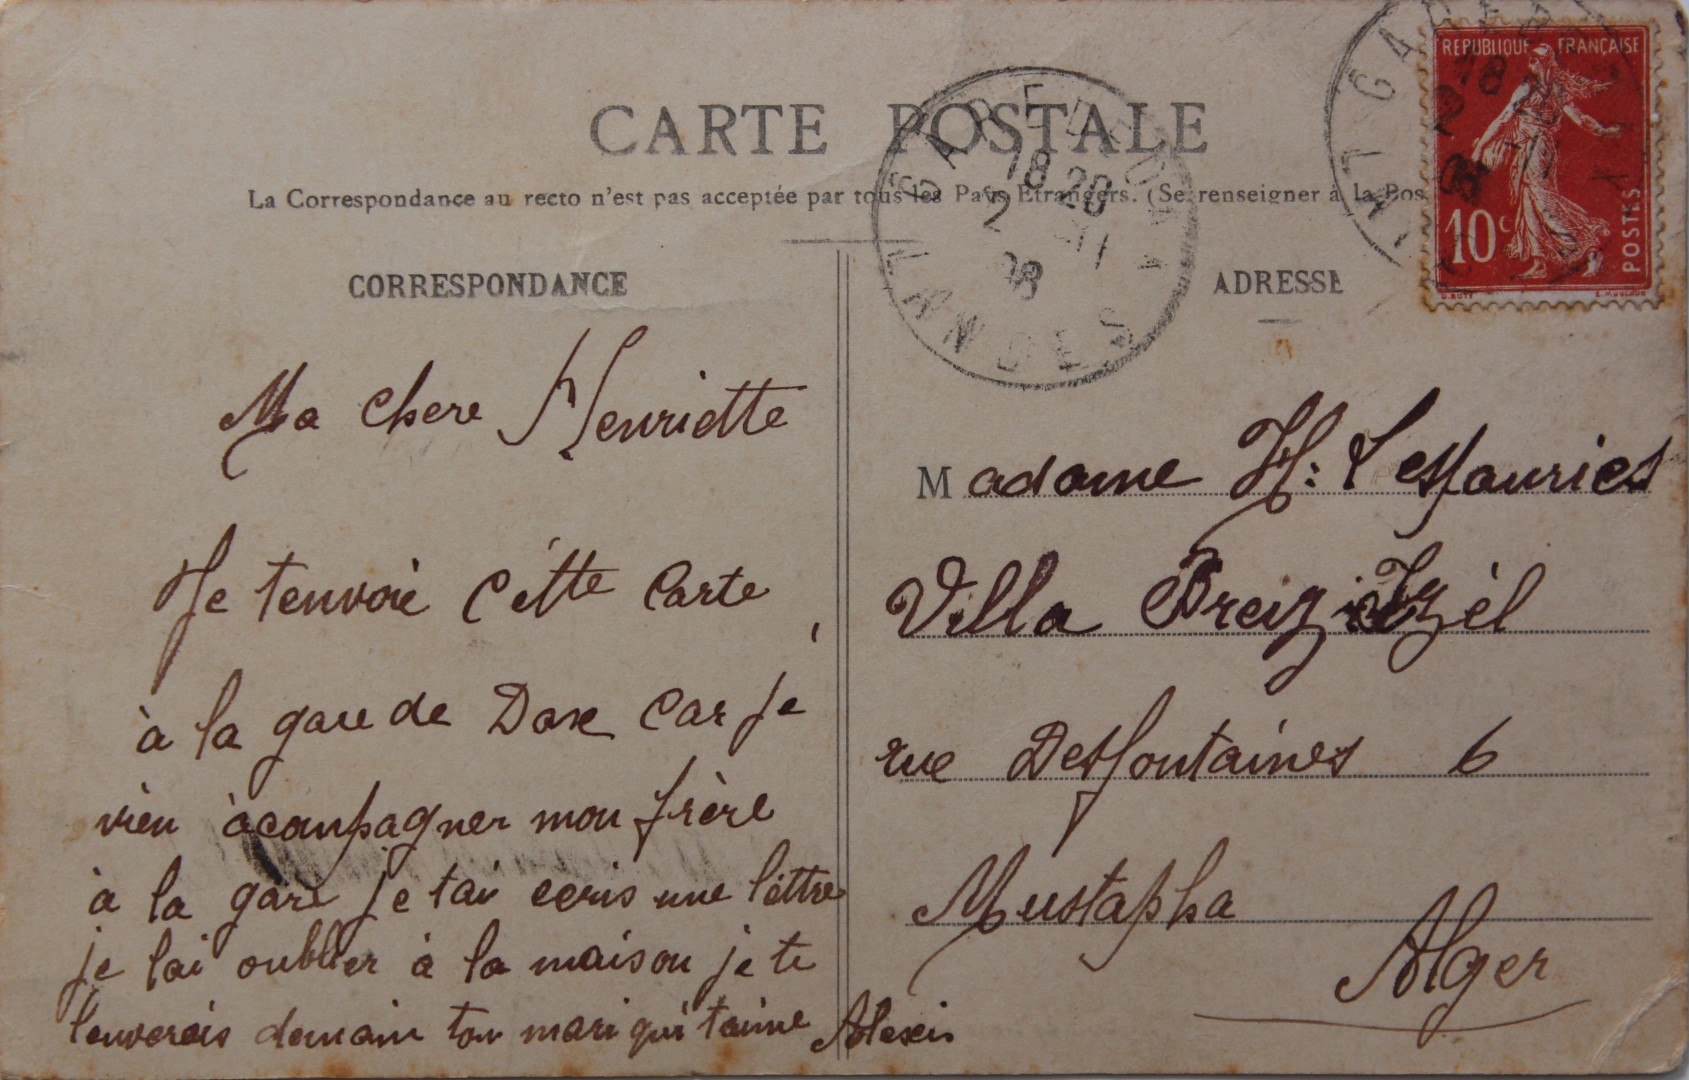 CARTE POSTALE
La Correspondance au recto n'est pas acceptée par tous les Pays Etrangers. (Se renseigner à la Pos
CORRESPONDANCE
Ma chere Henriette
Je tenvoie cètte carte
à la gare de Dax car je
vien àcompagner mon frère
à la gare je tai ecris une lèttre
je lai oublier à la maison je te
lenverais demain ton mari qui taime Alexis
ADRESSE
Madame H: Lesfauries
Villa Breiz Izèl
rue Desfontaines 6
Mustapha
Alger
REPUBLIQUE FRANÇAISE
10c
POSTES
GARE DE DAX
18 20
2 -11
08
LANDES